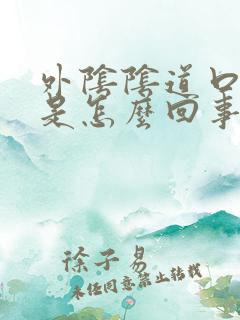 外陰陰道口
是怎麼回事
徐子易
未经同意禁止转载